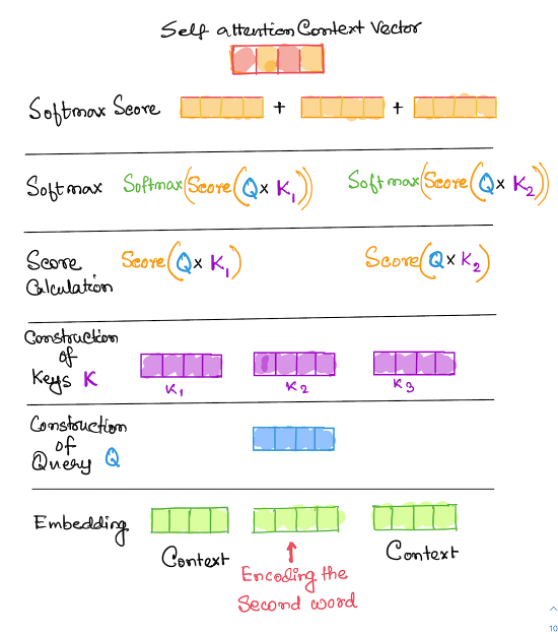 Self attention Context Vector
Softmax Score + +
Softmax Softmax(Score(Q x K1)) Softmax(Score(Q x K2))
Score
Calculation
Score(Q x K1) Score(Q x K2)
Construction
of
Keys K
K1 K2 K3
Construction
of
Query Q
Embedding
Context Context
Encoding the
Second word
10